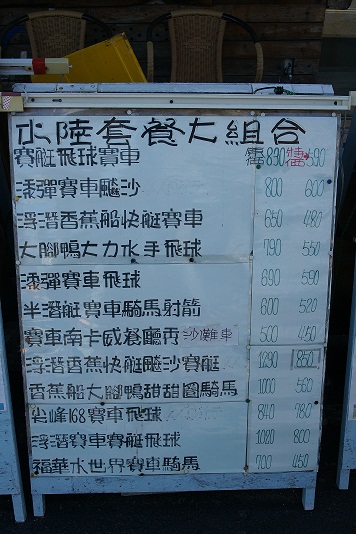 水陸套餐大組合
賽艇飛球賽車 890 590
滾彈賽車飈沙 800 600
浮潛香蕉船快艇賽車 650 480
大腳鴨大力水手飛球 790 550
滾彈賽車飛球 690 590
半潛艇賽車騎馬射箭 600 520
賽車南卡威餐廳丙 沙灘車 500 450
浮潛香蕉快艇飈沙賽艇 1290 850
香蕉船大腳鴨甜甜圈騎馬 1000 560
尖峰168賽車飛球 840 780
浮潛賽車賽艇飛球 1020 800
福華水世界賽車騎馬 700 450